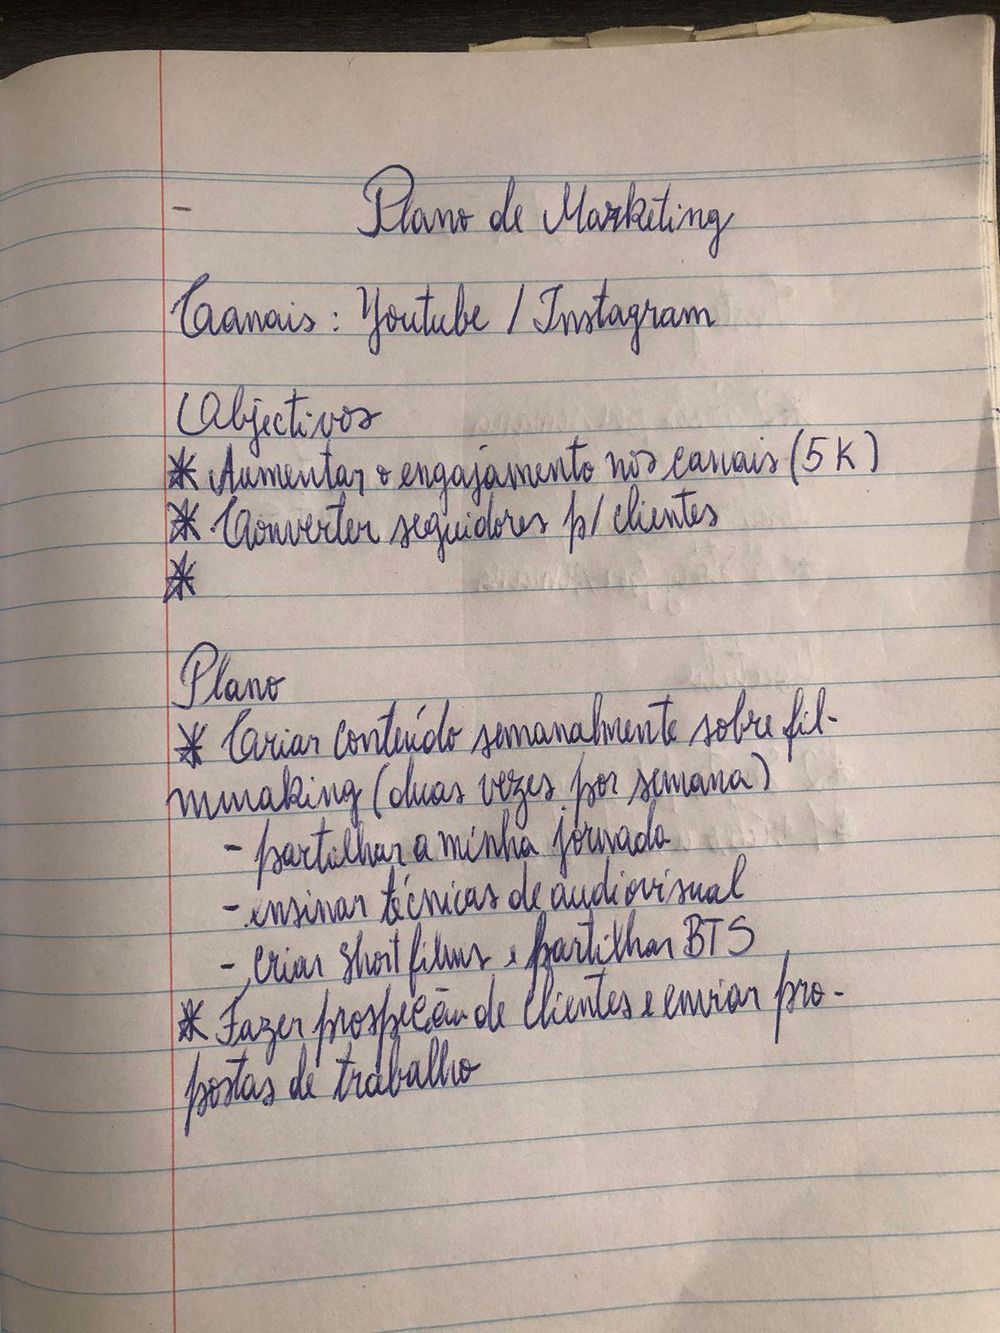 - Plano de Marketing
Canais: Youtube / Instagram
Objectivos
* Aumentar o engajamento nos canais (5K)
* Converter seguidores p/ clientes
*
Plano
* Criar conteúdo semanalmente sobre fil-
mmaking (duas vezes por semana)
- partilhar a minha jornada
- ensinar técnicas de audiovisual
- criar short films e partilhar BTS
* Fazer prospeção de clientes e enviar pro-
postas de trabalho